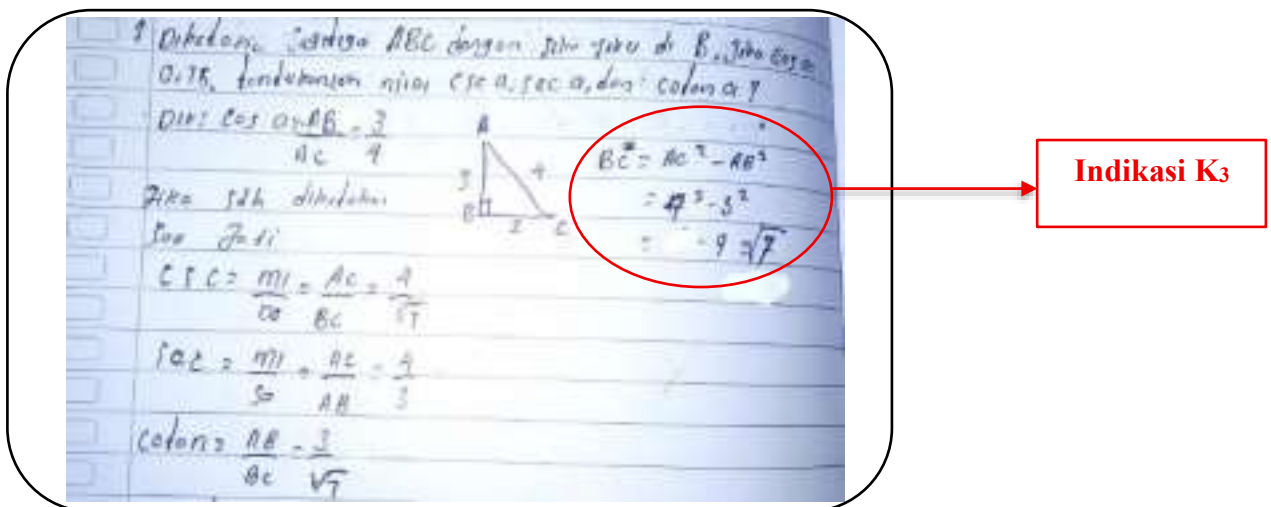 ABC dengan di B, jika cos a
0,75, tentukan nilai csc a, sec a, dan cotan a ?
Dik: cos a = AB/AC = 3/4
A
3
4
B
C
BC² = AC² - AB²
= 4² - 3²
= - 9 = √7
Jika sdh diketahui
Jadi
csc = mi/de = AC/BC = 4/√7
sec = mi/sa = AC/AB = 4/3
cotan = AB/BC = 3/√7
Indikasi K₃